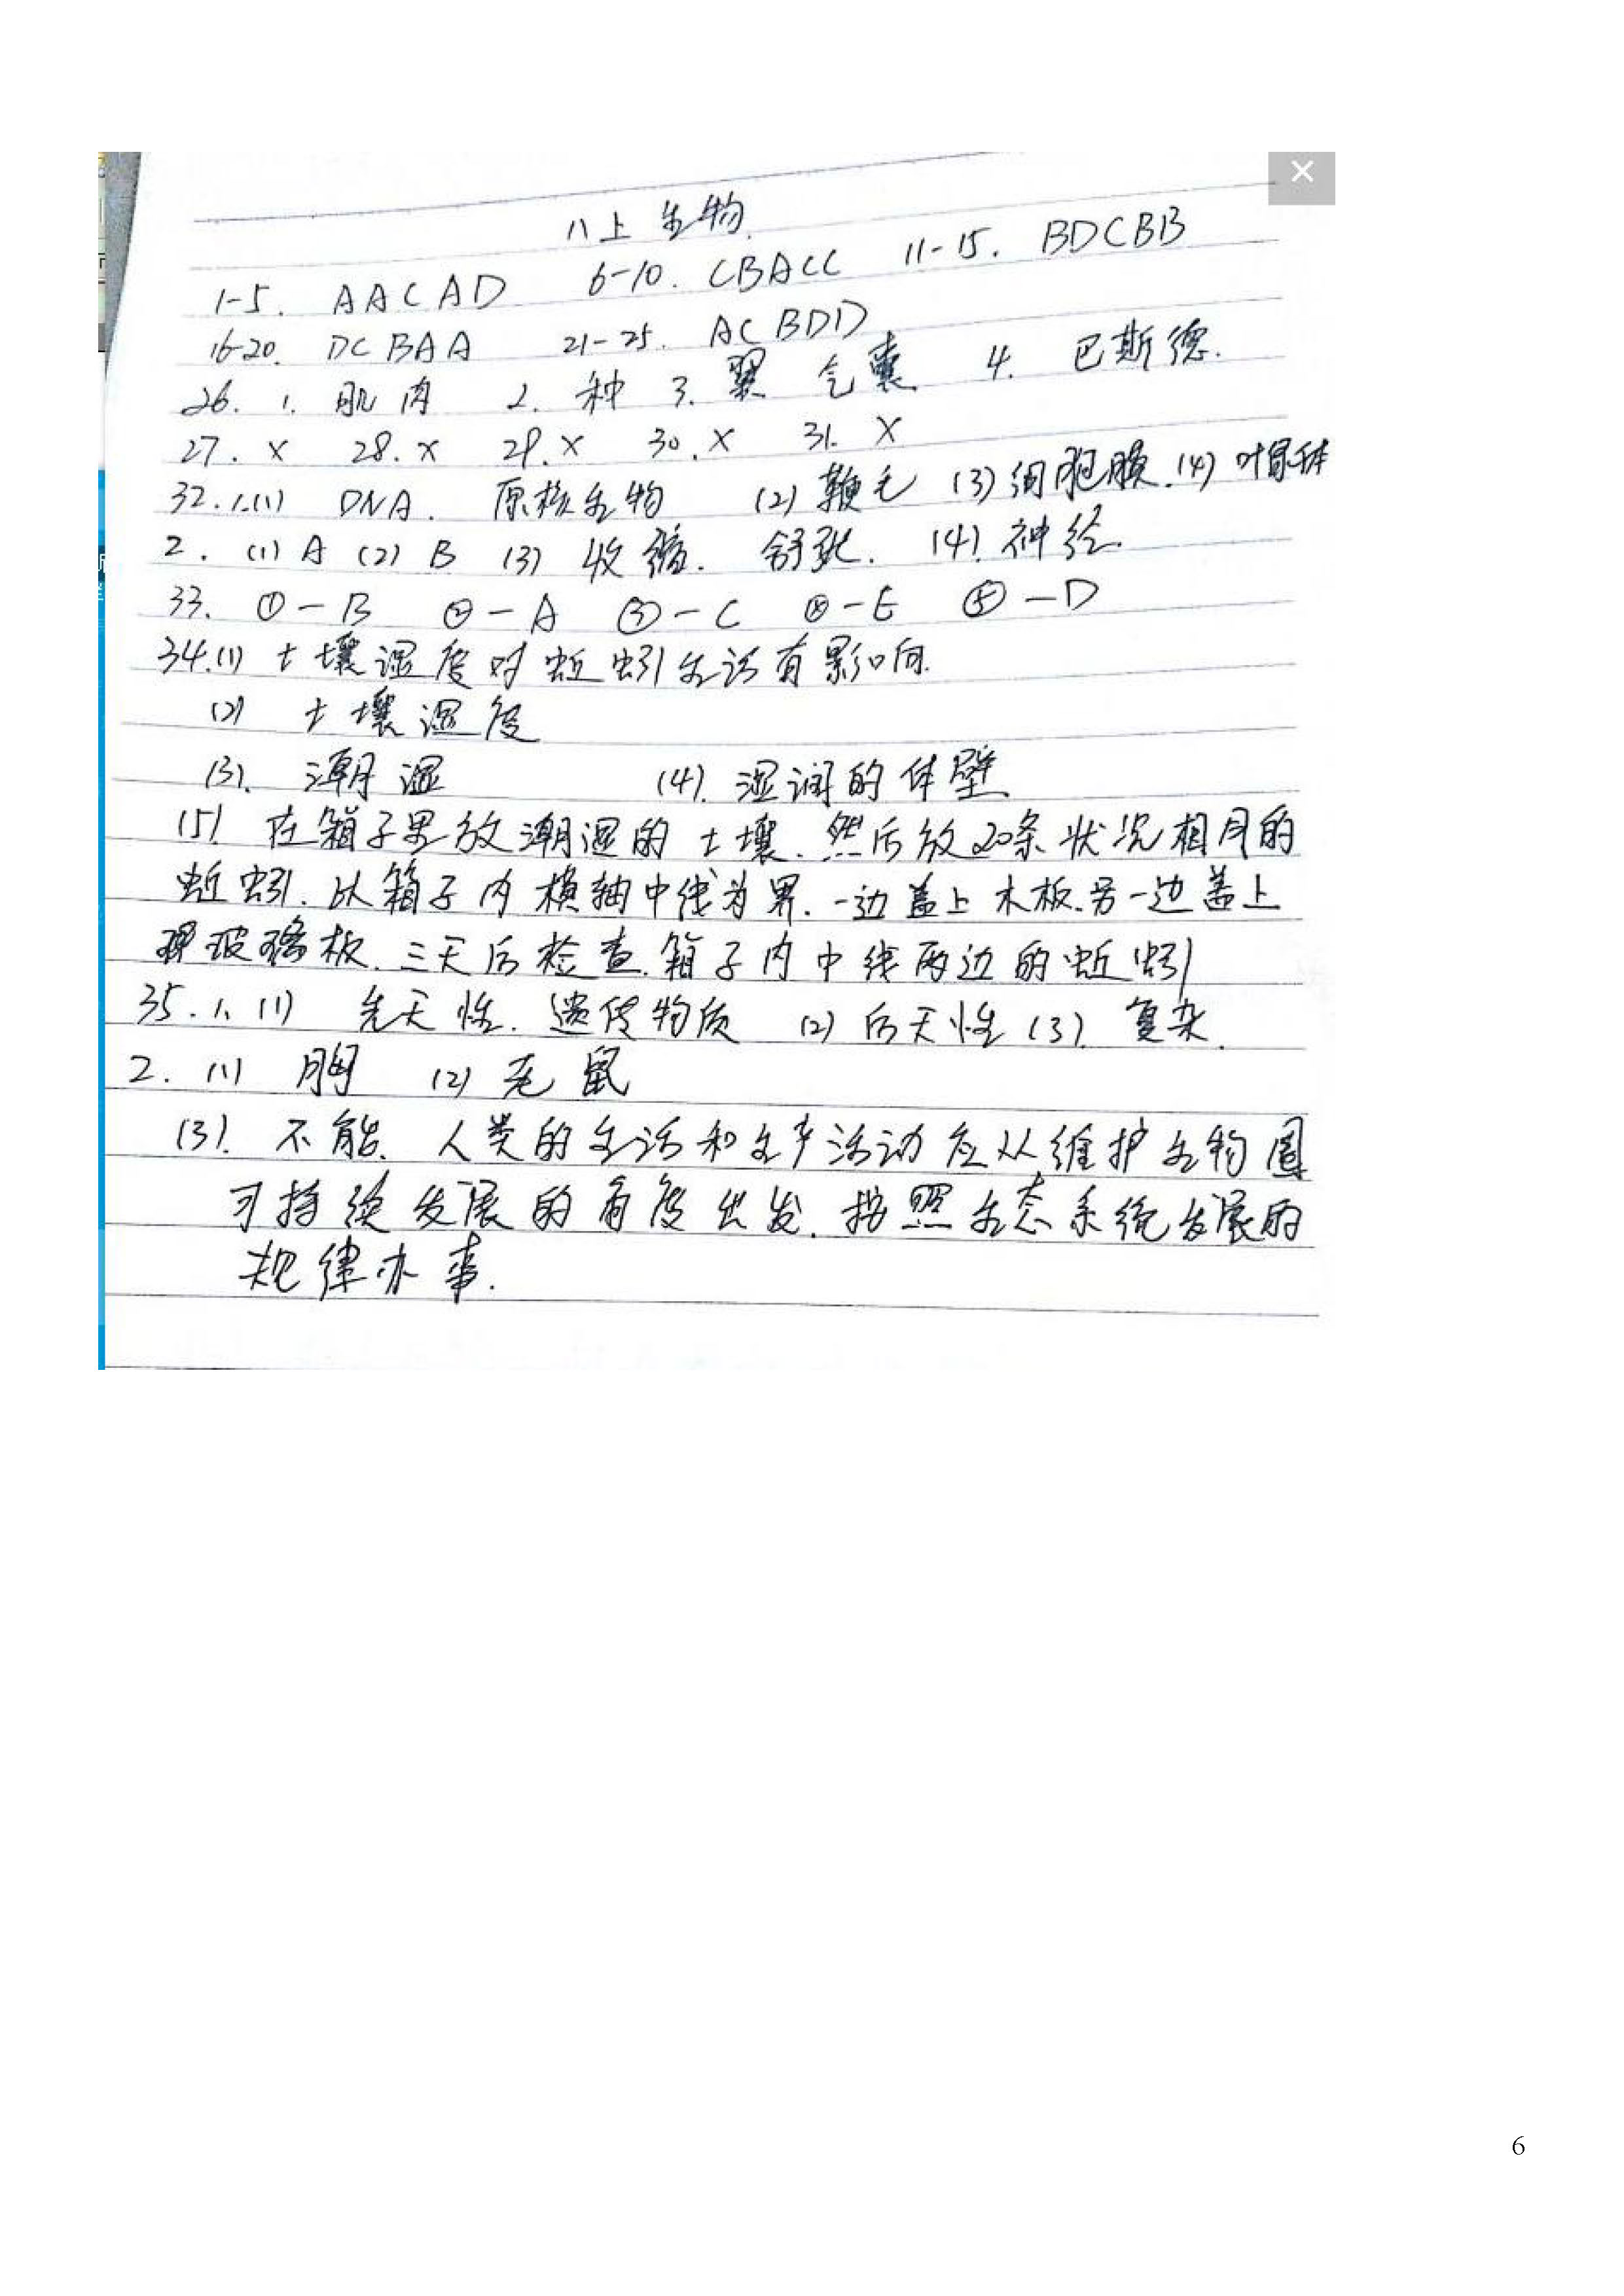 八上生物.
1-5. AACAD 6-10. CBACC 11-15. BDCBB
16-20. DCBAA 21-25. ACBDD
26. 1. 肌肉 2. 种 3. 翼 气囊 4. 巴斯德.
27. × 28. × 29. × 30. × 31. ×
32. 1.(1) DNA. 原核生物 (2) 鞭毛 (3) 细胞膜. (4) 叶绿体
2. (1) A (2) B (3) 收缩. 舒张. (4) 神经.
33. ①—B ②—A ③—C ④—E ⑤—D
34.(1) 土壤湿度对蚯蚓生活有影响.
(2) 土壤湿度
(3). 潮湿 (4). 湿润的体壁.
(5) 在箱子里放潮湿的土壤. 然后放20条状况相同的
蚯蚓. 以箱子内横轴中线为界. 一边盖上木板. 另一边盖上
玻璃板. 三天后检查. 箱子内中线两边的蚯蚓
35. 1. (1) 先天性. 遗传物质 (2) 后天性 (3). 复杂.
2. (1) 胸 (2) 老鼠
(3). 不能. 人类的生活和生产活动应从维护生物圈
可持续发展的角度出发. 按照生态系统发展的
规律办事.
6